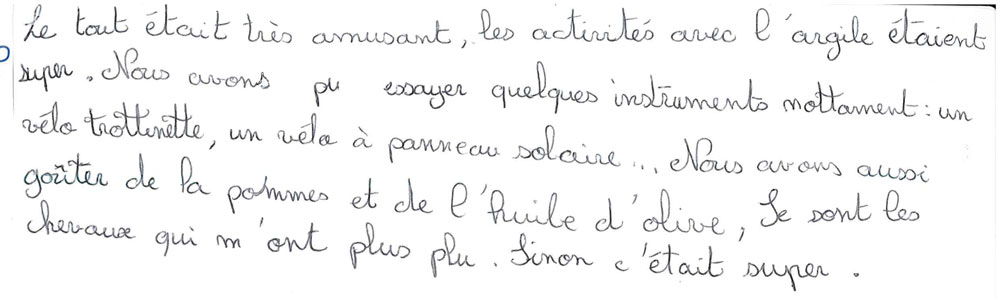 Le tout était très amusant, les activités avec l'argile étaient
super. Nous avons pu essayer quelques instruments nottament : un
vélo trottinette, un vélo à panneau solaire... Nous avons aussi
goûter de la pommes et de l'huile d'olive, Se sont les
chevaux qui m'ont plus plu. Sinon c'était super.